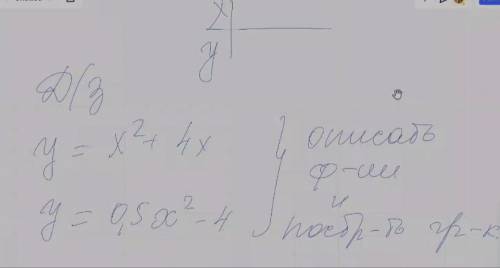 x
y
Д/з
y = x² + 4x
y = 0,5x² - 4
описать
ф-ии
и
постр-ть гр-к